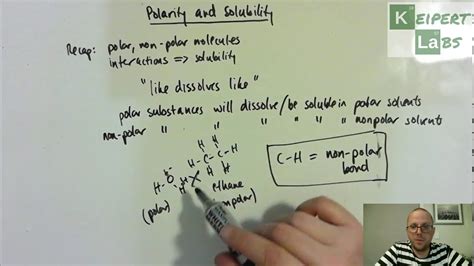 Polarity and Solubility
KEIPERT
LABS
Recap: polar, non-polar molecules
interactions => solubility
"like dissolves like"
polar substances will dissolve/be soluble in polar solvents
non-polar " " " " " " nonpolar solvents
H H
H-C-C-H
H H
δ-
H-O H
H
ethane
(polar)
polar)
C-H = non-polar
bond